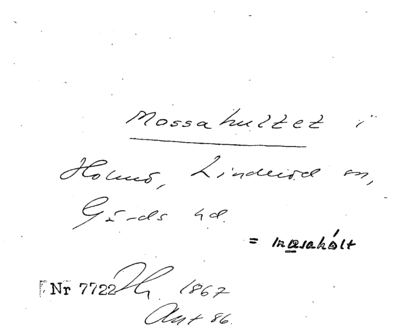 Mossahultet i
Holmö, Linderöd sn,
Gärds hd.
= måsahålt
Nr 7722 1867
Ant 86.